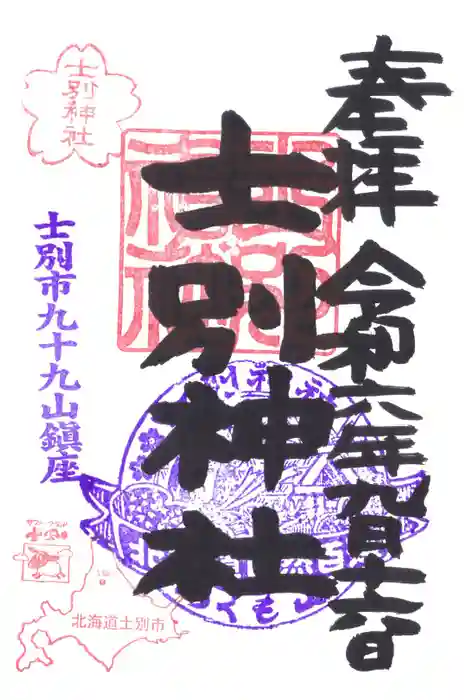 奉拝
令和六年九月十六日
士別神社
士別神社
士別市九十九山鎮座
北海道士別市